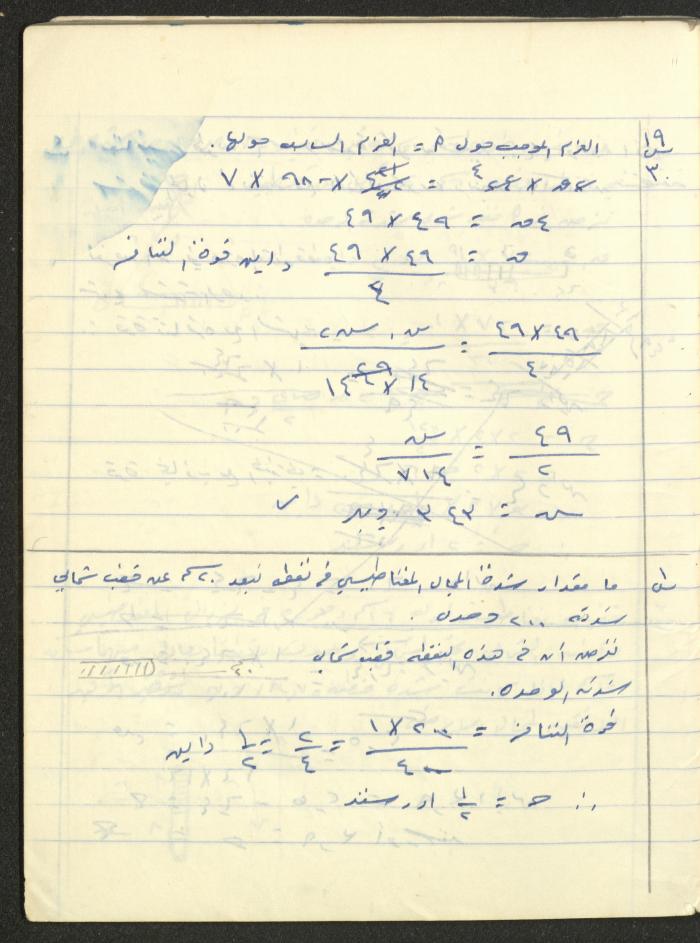 س١٩ العزم الموجب حول م = العزم السالب حولها .
٣٠
٤ × ٩٨٠ × ٧
٤ ق = ٤٩ × ٤٩
ق = ٤٩ × ٤٩ / ٤ داين قوة التنافر
٤٩ × ٤٩ / ٤ = س١ س٢ / ١٤ × ١٤
٤٩ / ٢ = س / ١٤ × ٧
س = ٣٤٣ وبر ✓
س١ ما مقدار شدة المجال المغناطيسي في نقطة تبعد ٢٠ سم عن قطب شمالي
شدته ٢٠٠ وحدة .
نفرض أن في هذه النقطة قطب شمالي
شدته الوحدة .
قوة التنافر = ٢٠٠ × ١ / ٤٠٠ = ٢ / ٤ = ١ / ٢ داين
∴ ح = ١ / ٢ اورستد